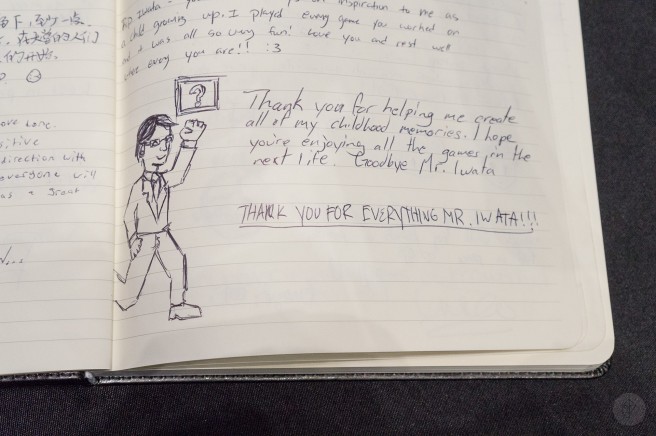 多下,至少一点
的人们
的开始。
ove bone
sitive
direction with
everyone will
as a great
RIP Iwata - You an inspiration to me as
a child growing up. I played every game you worked on
and it was all so very fun! Love you and rest well
where every you are!! :3
?
Thank you for helping me create
all of my childhood memories. I hope
you're enjoying all the games in the
next life. Goodbye Mr. Iwata
THANK YOU FOR EVERYTHING MR. IWATA!!!